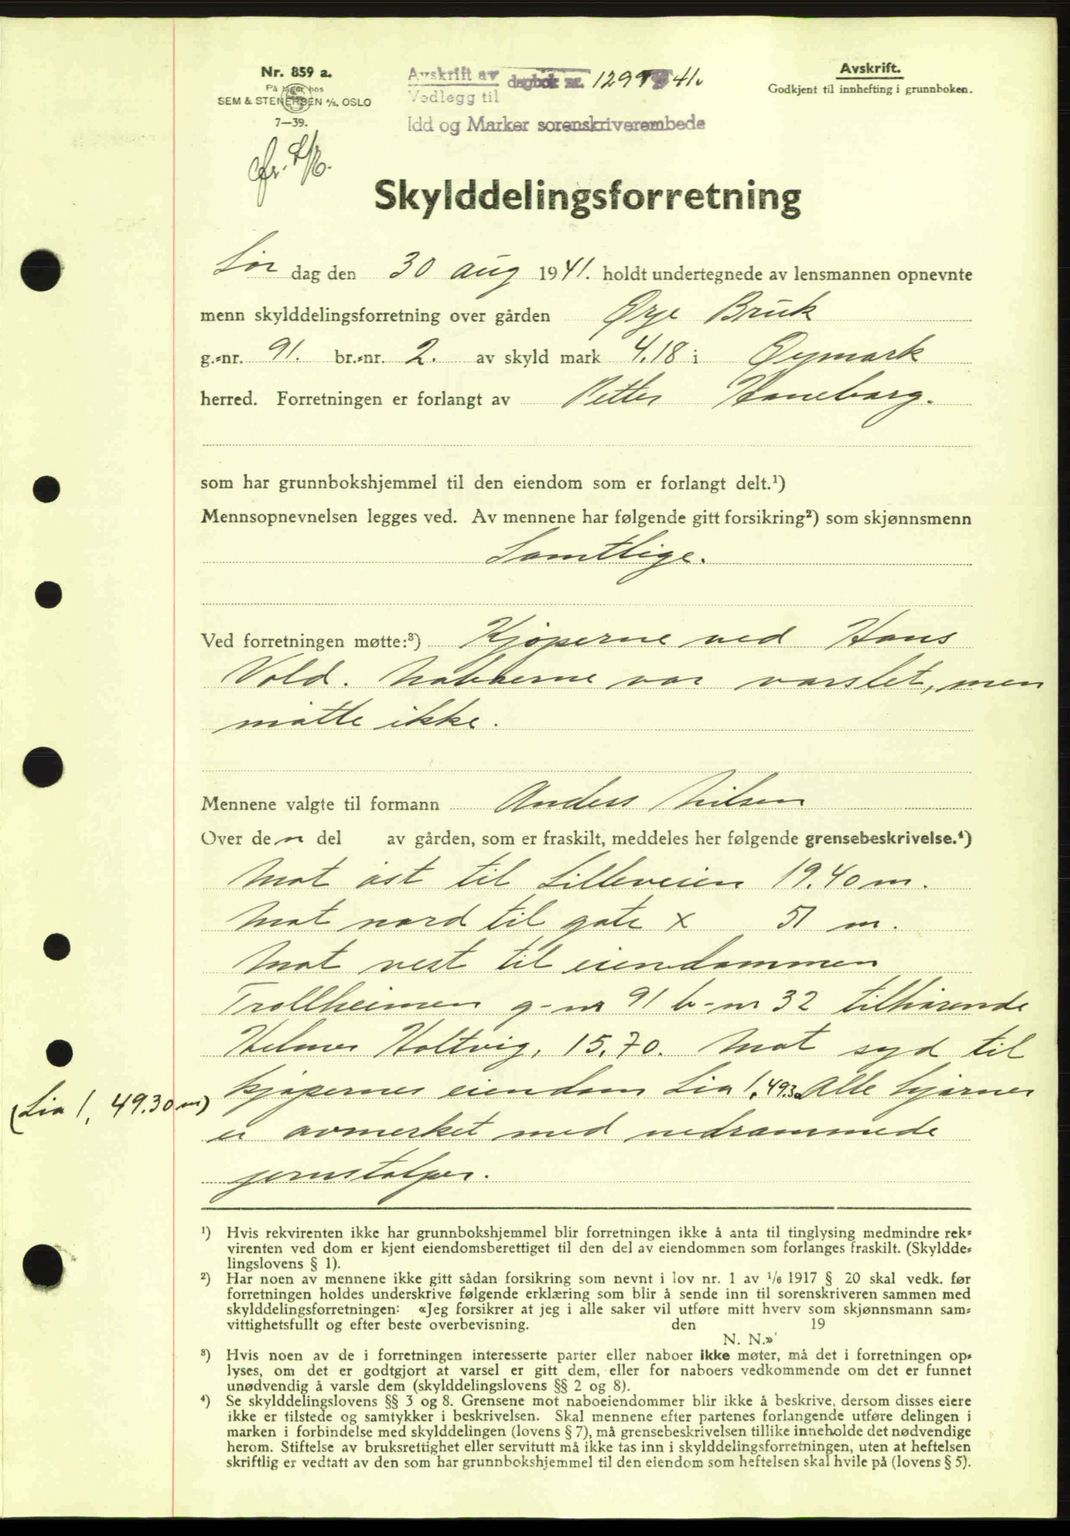 Nr. 859 a.
På lager hos
SEM & STENERSEN A/S, OSLO
7—39.
Avskrift av dagbok nr. 1299 41.
Vedlegg til
Idd og Marker sorenskriverembede
Avskrift.
Godkjent til innhefting i grunnboken.
Skylddelingsforretning
Lør dag den 30 aug 1941. holdt undertegnede av lensmannen opnevnte
menn skylddelingsforretning over gården Ørje Bruk
g.-nr. 91. br.-nr. 2. av skyld mark 4,18 i Øymark
herred. Forretningen er forlangt av Petter Haneborg.
som har grunnbokshjemmel til den eiendom som er forlangt delt.¹)
Mennsopnevnelsen legges ved. Av mennene har følgende gitt forsikring²) som skjønnsmenn
Samtlige.
Ved forretningen møtte:³) Kjøperne ved Hans
Vold. Naboerne var varslet, men
møtte ikke.
Mennene valgte til formann Anders Nilsen
Over den del av gården, som er fraskilt, meddeles her følgende grensebeskrivelse.⁴)
Mot øst til Lilleveien 19.40 m.
Mot nord til gate x 51 m.
Mot vest til eiendommen
Trollheimen g-nr 91 b-nr 32 tilhørende
Helmer Holtvig, 15,70. Mot syd til
kjøpernes eiendom Lia 1, 49.30 Alle hjørner
(Lia 1, 49.30 m)
er avmerket med nedrammede
jernstolper.
¹) Hvis rekvirenten ikke har grunnbokshjemmel blir forretningen ikke å anta til tinglysing medmindre rek-
virenten ved dom er kjent eiendomsberettiget til den del av eiendommen som forlanges fraskilt. (Skyldde-
lingslovens § 1).
²) Har noen av mennene ikke gitt sådan forsikring som nevnt i lov nr. 1 av 1/6 1917 § 20 skal vedk. før
forretningen holdes underskrive følgende erklæring som blir å sende inn til sorenskriveren sammen med
skylddelingsforretningen: «Jeg forsikrer at jeg i alle saker vil utføre mitt hverv som skjønnsmann sam-
vittighetsfullt og efter beste overbevisning. den 19
N. N.»
³) Hvis noen av de i forretningen interesserte parter eller naboer ikke møter, må det i forretningen op-
lyses, om det er godtgjort at varsel er gitt dem, eller for naboers vedkommende om det er funnet
unødvendig å varsle dem (skylddelingslovens §§ 2 og 8).
⁴) Se skylddelingslovens §§ 3 og 8. Grensene mot naboeiendommer blir ikke å beskrive, dersom disses eiere
ikke er tilstede og samtykker i beskrivelsen. Skal mennene efter partenes forlangende utføre delingen i
marken i forbindelse med skylddelingen (lovens § 7), må grensebeskrivelsen tillike inneholde det nødvendige
herom. Stiftelse av bruksrettighet eller servitutt må ikke tas inn i skylddelingsforretningen, uten at heftelsen
skriftlig er vedtatt av den som har grunnbokshjemmel til den eiendom som heftelsen skal hvile på (lovens § 5).